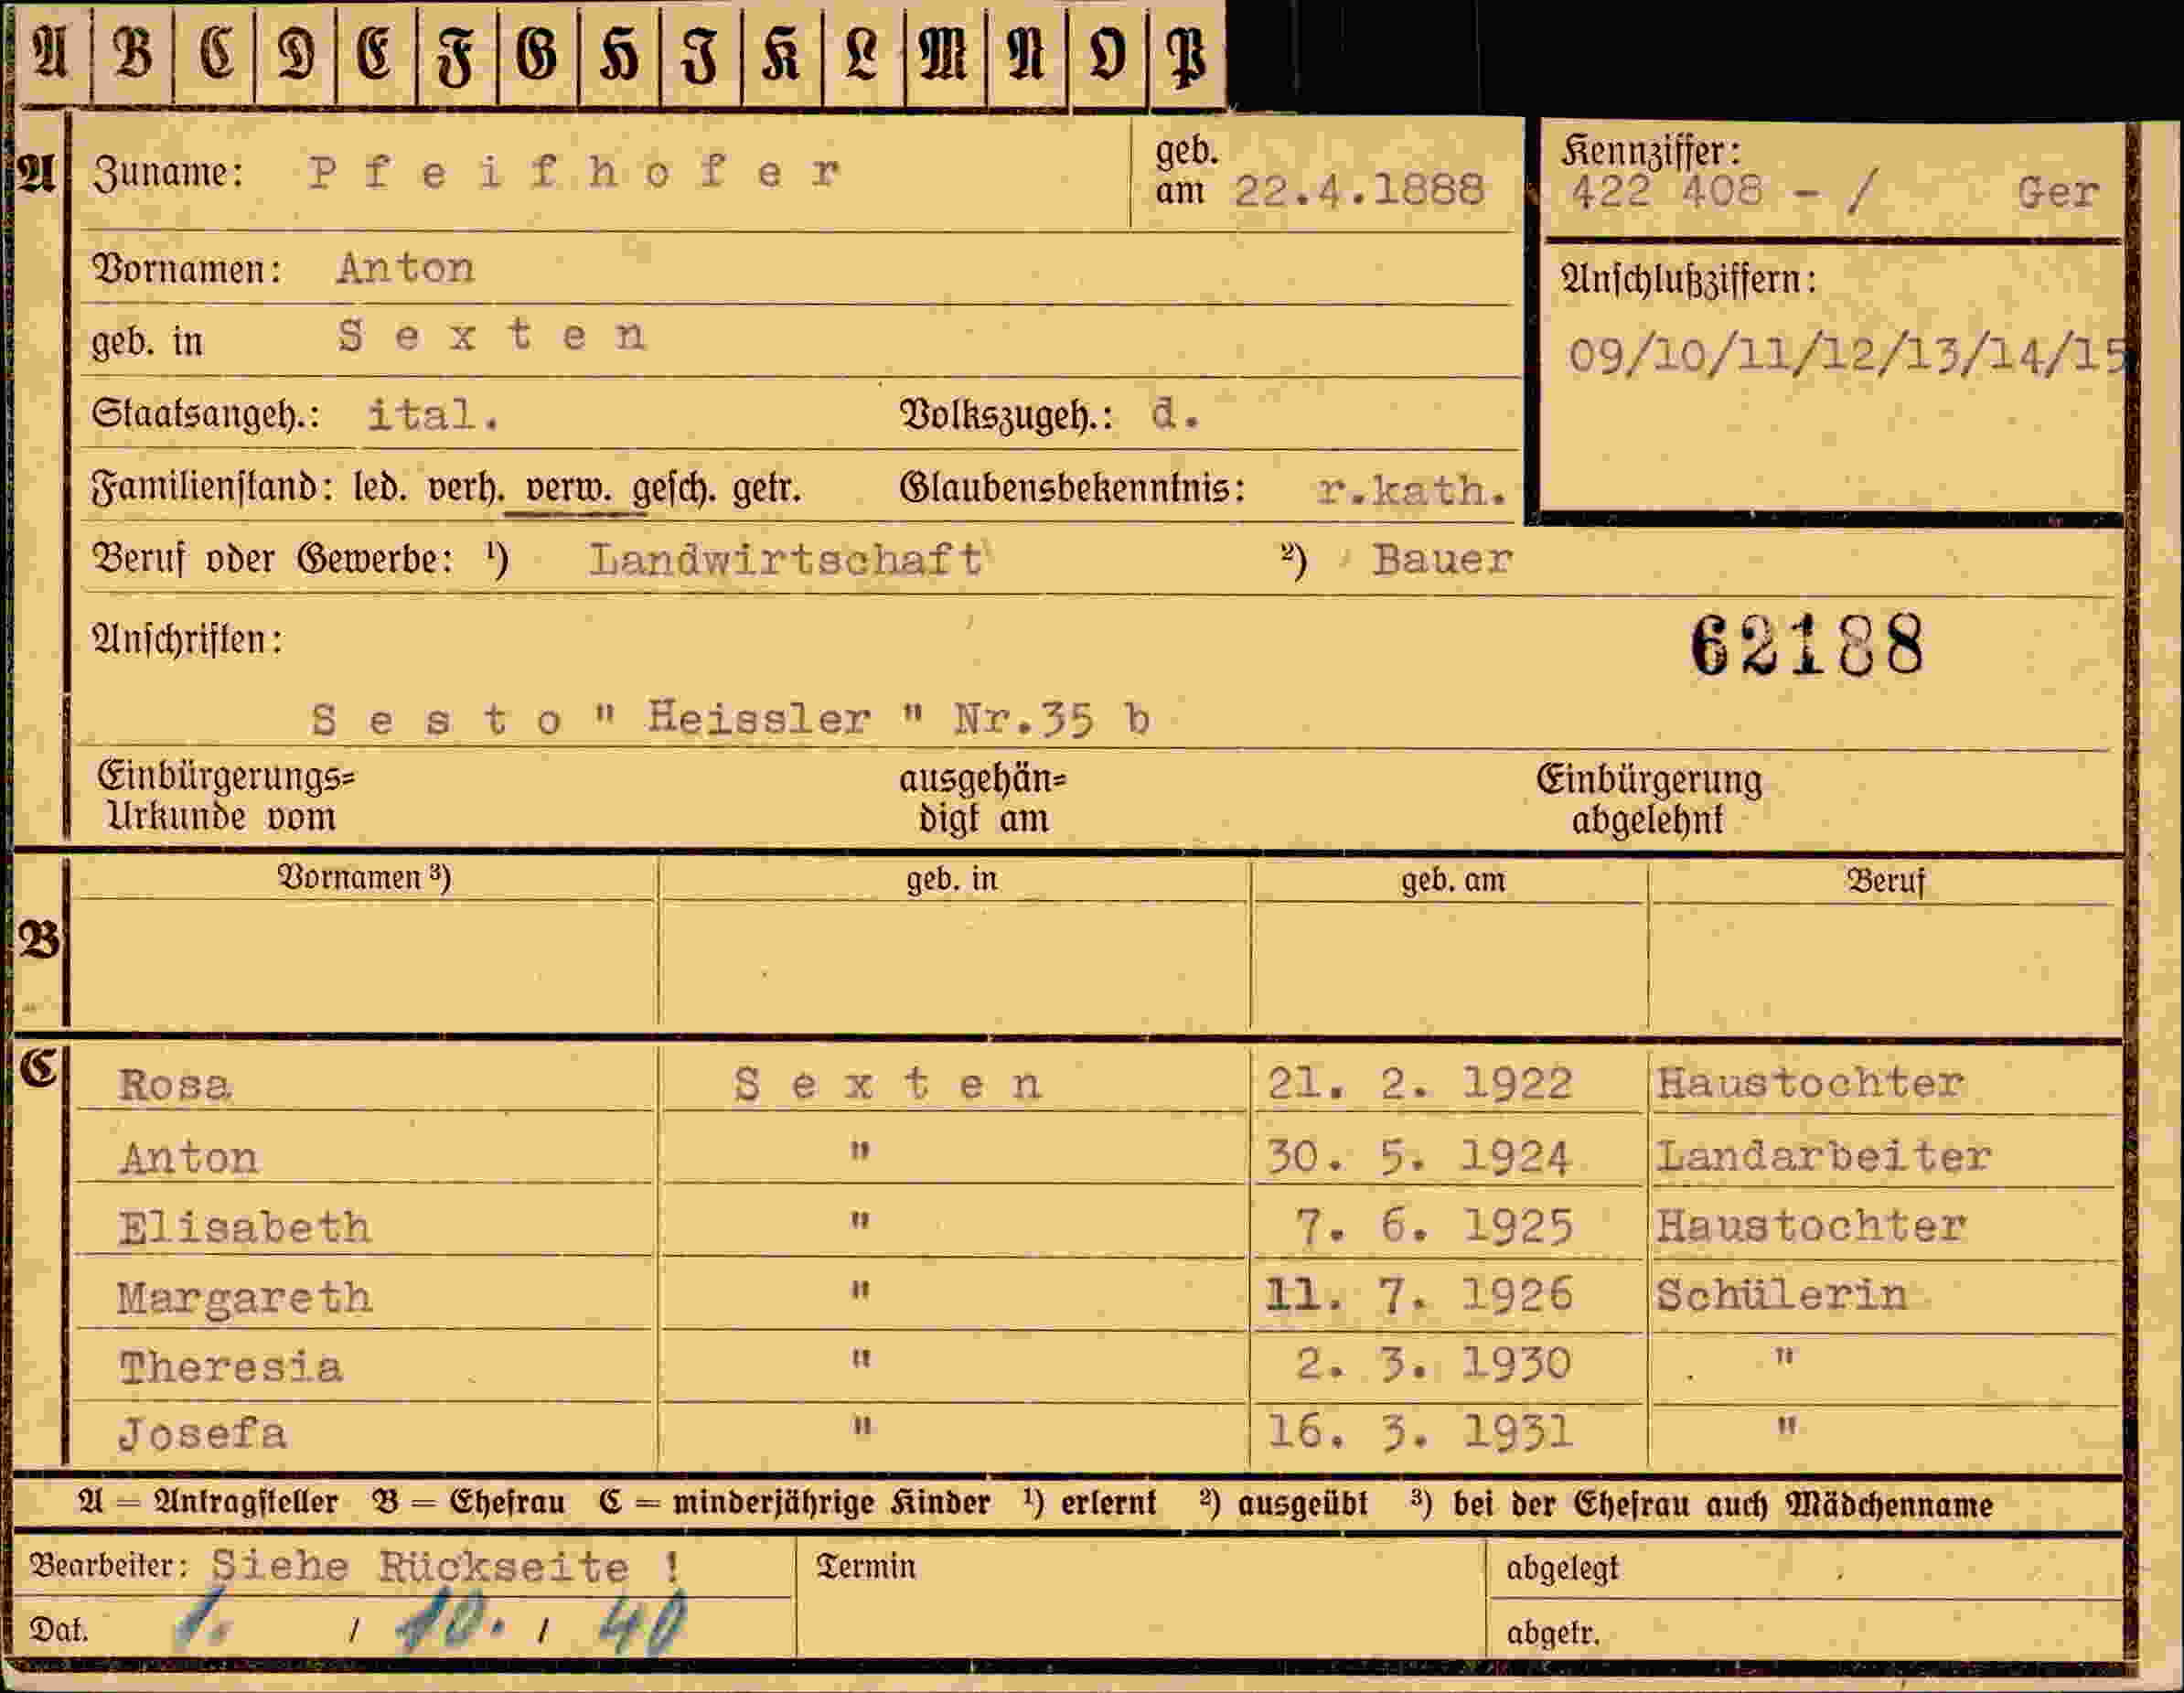 A B C D E F G H J K L M N O P
A Zuname: Pfeifhofer geb. am 22.4.1888
Kennziffer: 422 408 - / Ger
Vornamen: Anton
Anschlußziffern:
geb. in Sexten
09/10/11/12/13/14/15
Staatsangeh.: ital. Volkszugeh.: d.
Familienstand: led. verh. verw. gesch. getr. Glaubensbekenntnis: r.kath.
Beruf oder Gewerbe: ¹) Landwirtschaft ²) Bauer
Anschriften:
62188
Sesto " Heissler " Nr.35 b
Einbürgerungs= ausgehän= Einbürgerung
Urkunde vom digt am abgelehnt
Vornamen ³) geb. in geb. am Beruf
B
C Rosa Sexten 21. 2. 1922 Haustochter
Anton " 30. 5. 1924 Landarbeiter
Elisabeth " 7. 6. 1925 Haustochter
Margareth " 11. 7. 1926 Schülerin
Theresia " 2. 3. 1930 "
Josefa " 16. 3. 1931 "
A = Antragsteller B = Ehefrau C = minderjährige Kinder ¹) erlernt ²) ausgeübt ³) bei der Ehefrau auch Mädchenname
Bearbeiter: Siehe Rückseite ! Termin abgelegt
Dat. 1. / 10. / 40 abgetr.